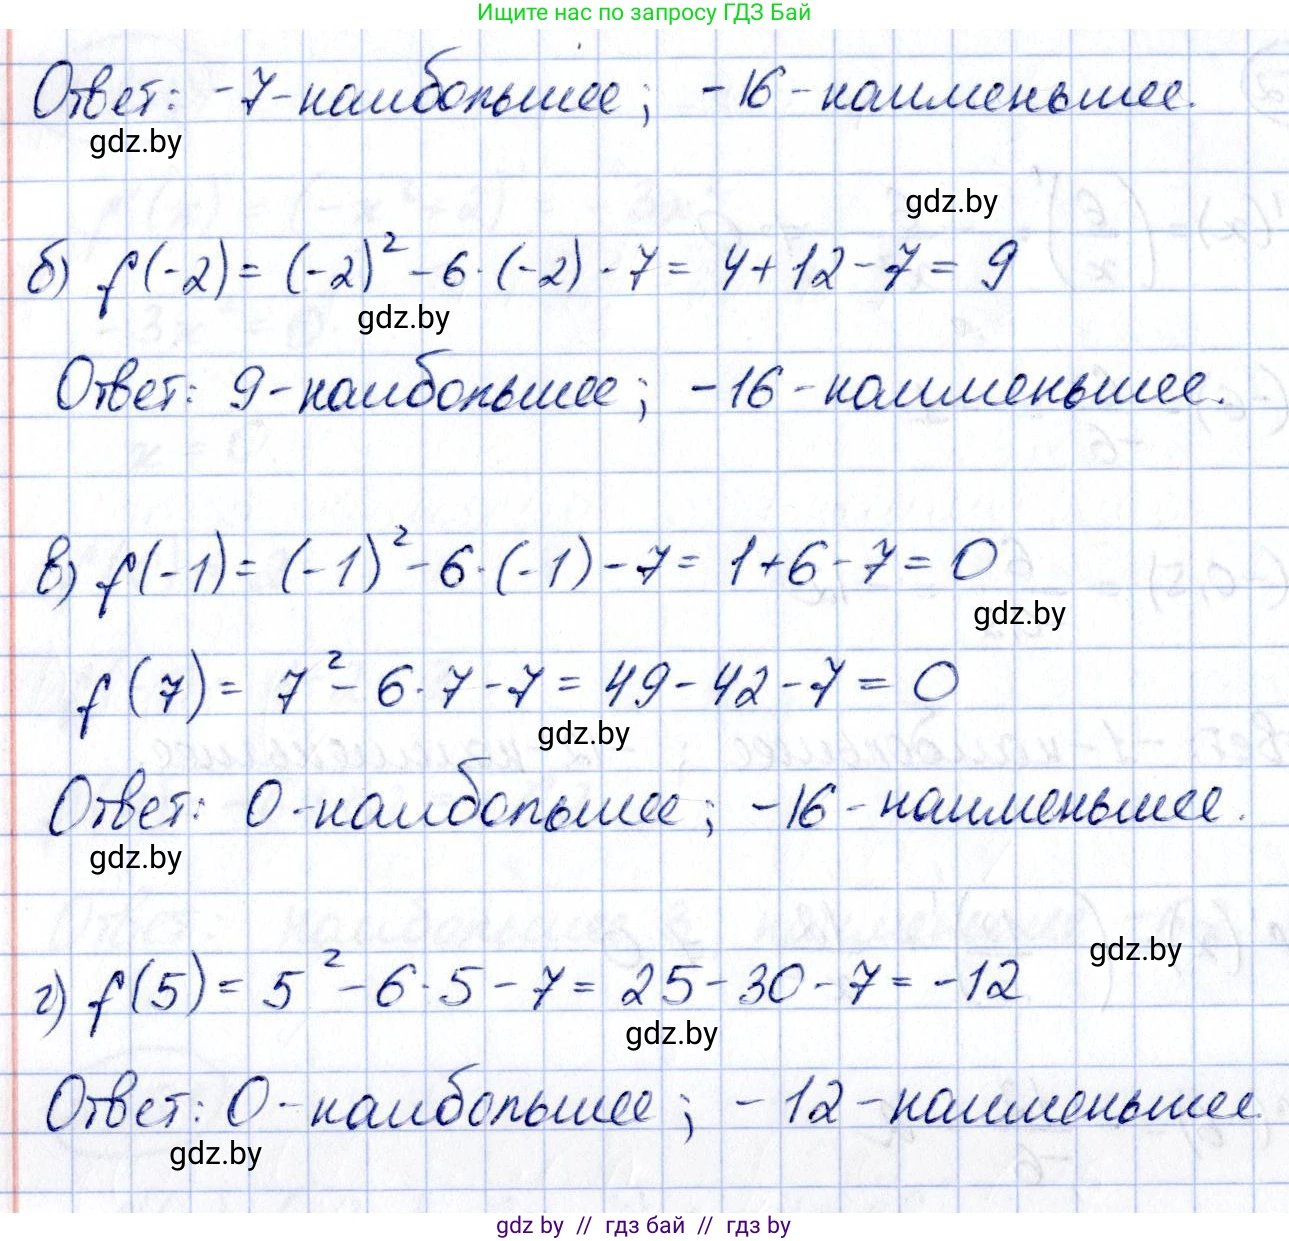 Ищите нас по запросу ГДЗ Бай
Ответ: -7 - наибольшее; -16 - наименьшее.
gdz.by
gdz.by
б) f(-2) = (-2)² - 6·(-2) - 7 = 4 + 12 - 7 = 9
gdz.by
Ответ: 9 - наибольшее; -16 - наименьшее.
в) f(-1) = (-1)² - 6·(-1) - 7 = 1 + 6 - 7 = 0
gdz.by
f(7) = 7² - 6·7 - 7 = 49 - 42 - 7 = 0
gdz.by
Ответ: 0 - наибольшее; -16 - наименьшее.
gdz.by
gdz.by
г) f(5) = 5² - 6·5 - 7 = 25 - 30 - 7 = -12
gdz.by
Ответ: 0 - наибольшее; -12 - наименьшее
gdz.by
gdz by // гдз бай // гдз by